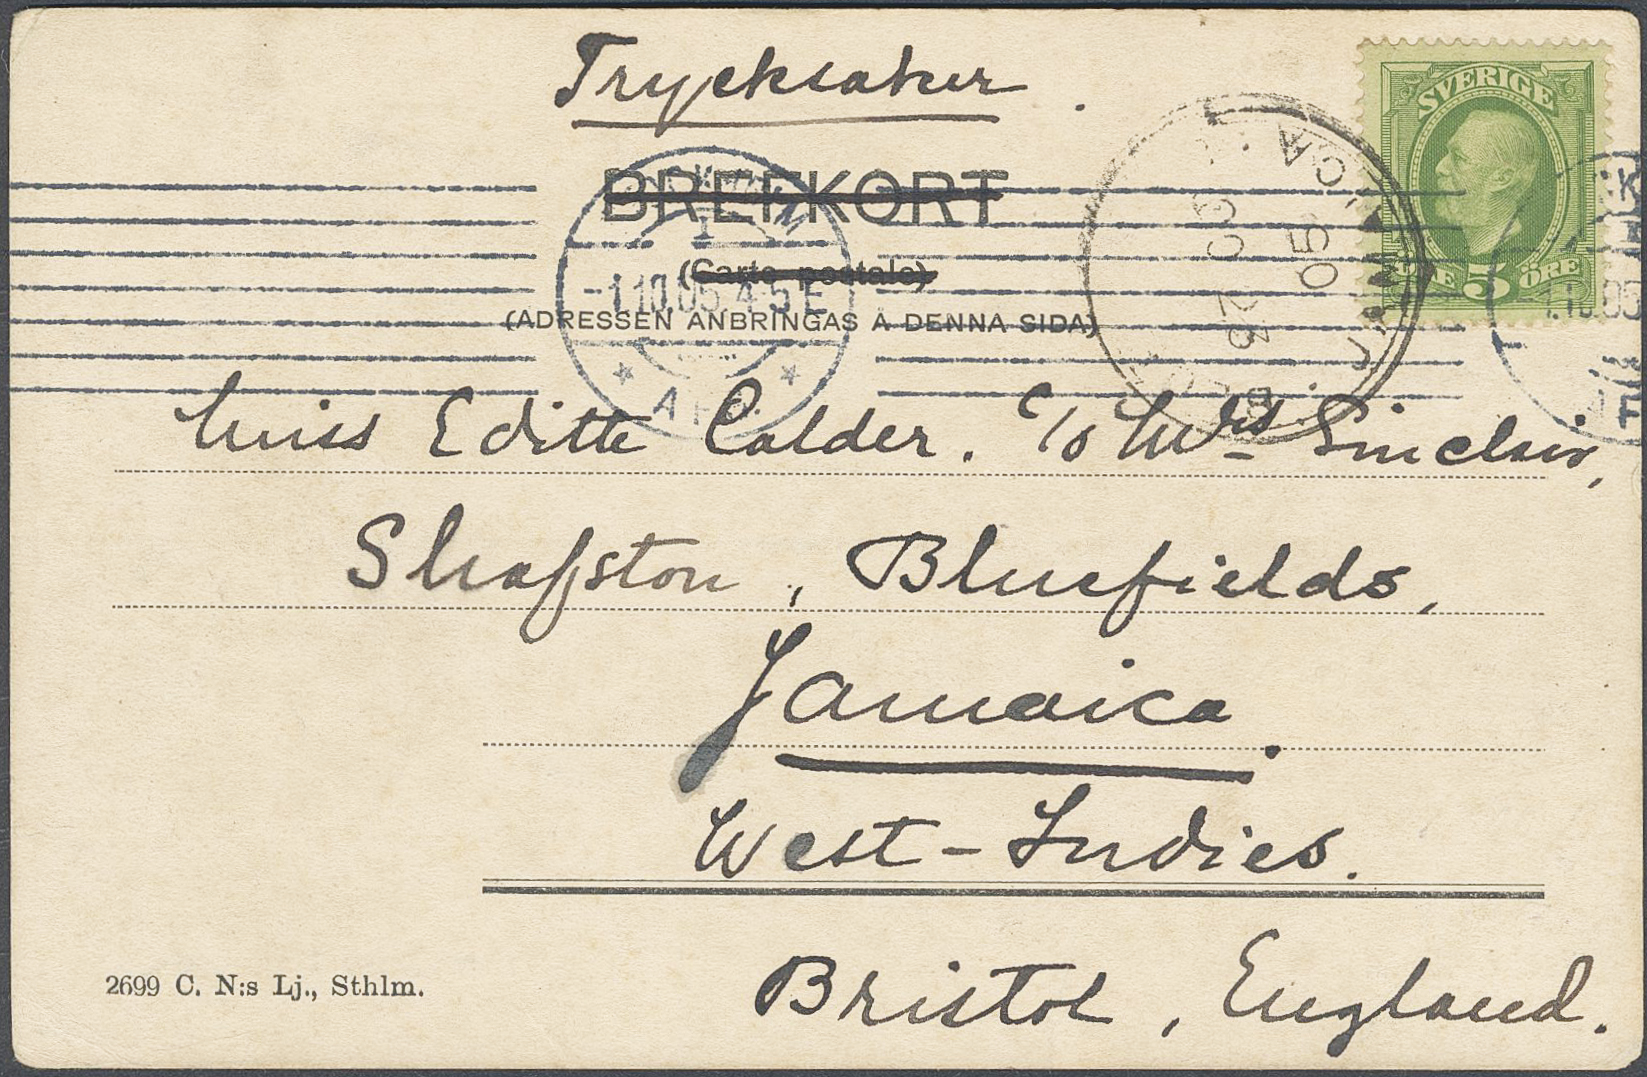 Trycksaker.
SVERIGE
BREFKORT
(Carte postale)
ÖRE 5 ÖRE
-1.10.05. 4-5 E
(ADRESSEN ANBRINGAS Å DENNA SIDA)
JAMAICA
05
Miss Edith Calder. c/o Mrs Sinclair,
Shafston, Bluefields,
Jamaica.
West-Indies.
Bristol, England.
2699 C. N:s Lj., Sthlm.